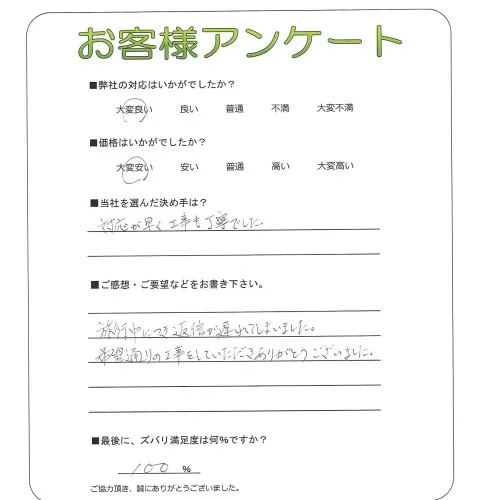 お客様アンケート
■弊社の対応はいかがでしたか？
大変良い 良い 普通 不満 大変不満
■価格はいかがでしたか？
大変安い 安い 普通 高い 大変高い
■当社を選んだ決め手は？
対応が早く工事も丁寧でした。
■ご感想・ご要望などをお書き下さい。
旅行中につき返信が遅れてしまいました。
希望通りの工事をしていただきありがとうございました。
■最後に、ズバリ満足度は何%ですか？
100 %
ご協力頂き、誠にありがとうございました。